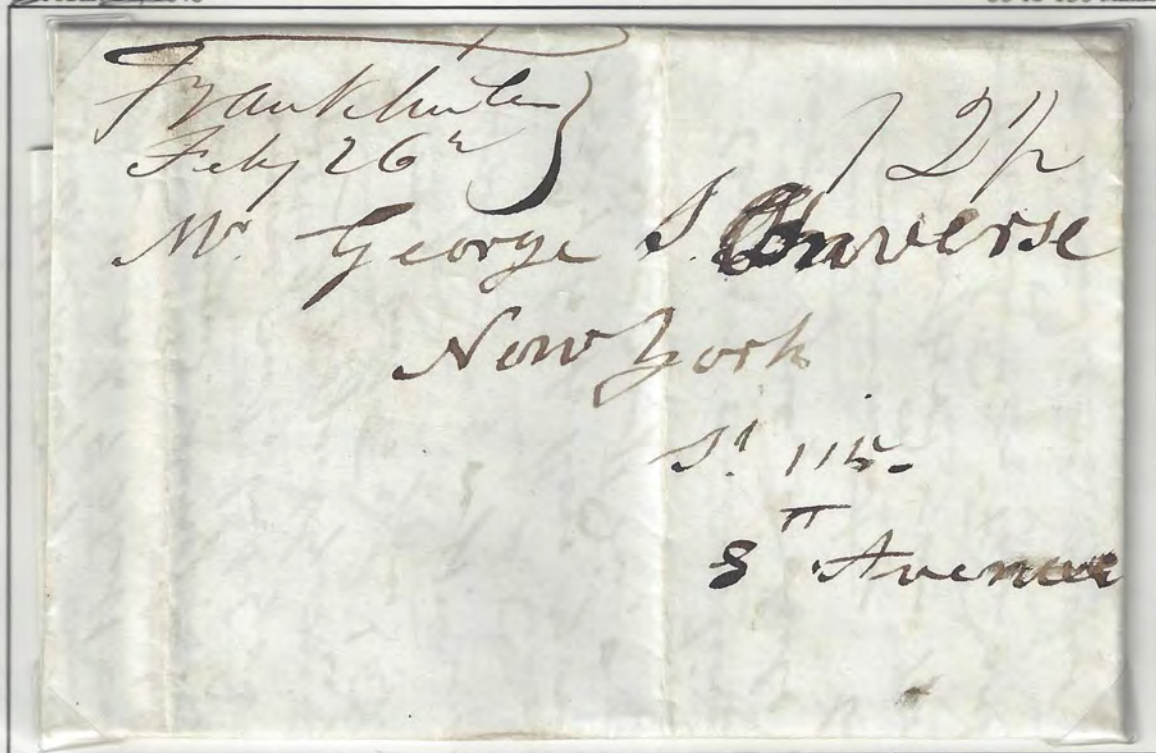 Feby 26th
12 1/2
Mr. George S. Converse
New York
St 115.
8TH Avenue